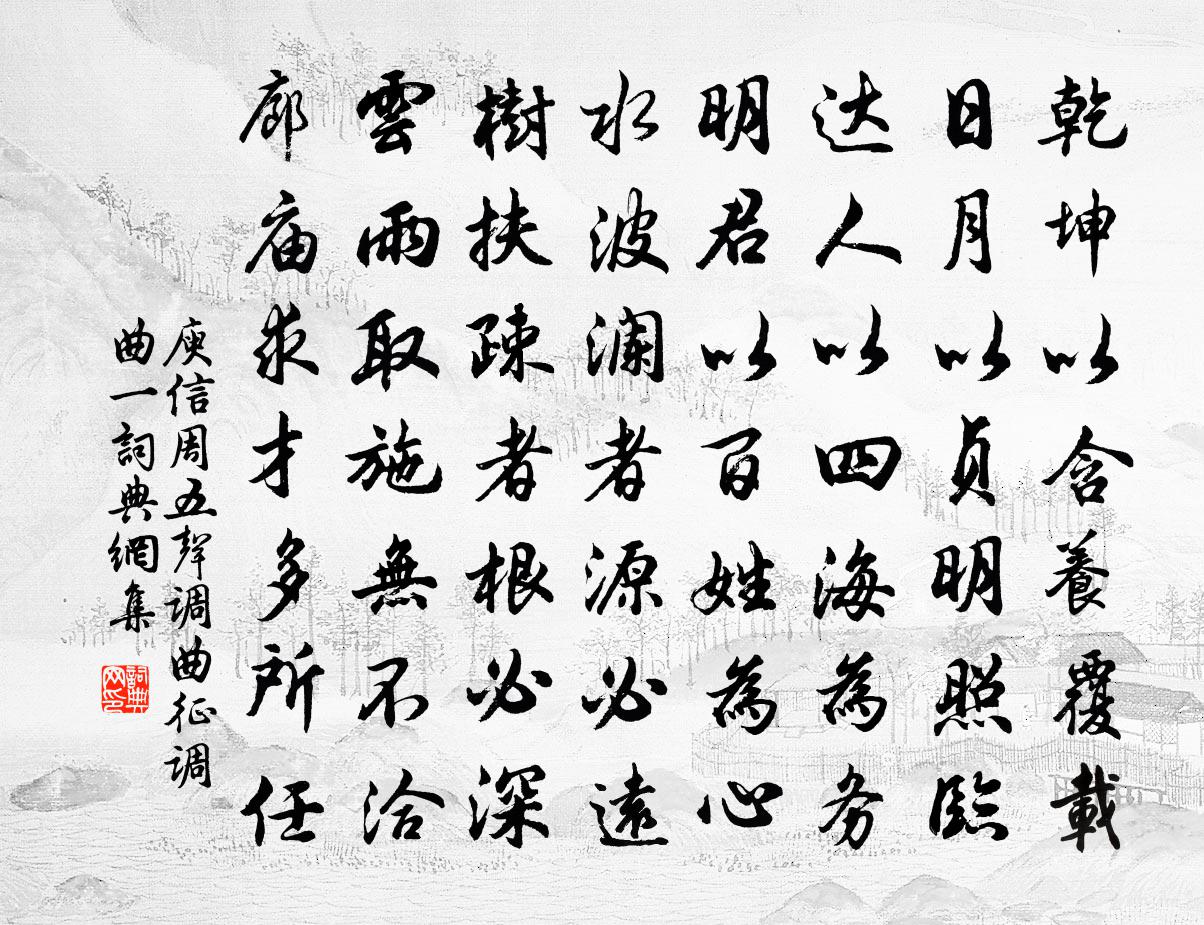 乾坤以含養覆載
日月以贞明照臨
达人以四海為务
明君以百姓為心
水波澜者源必遠
樹扶疎者根必深
雲雨取施無不洽
廊庙求才多所任
庾信周五聲调曲征调
曲一詞典網集
詞典
网印